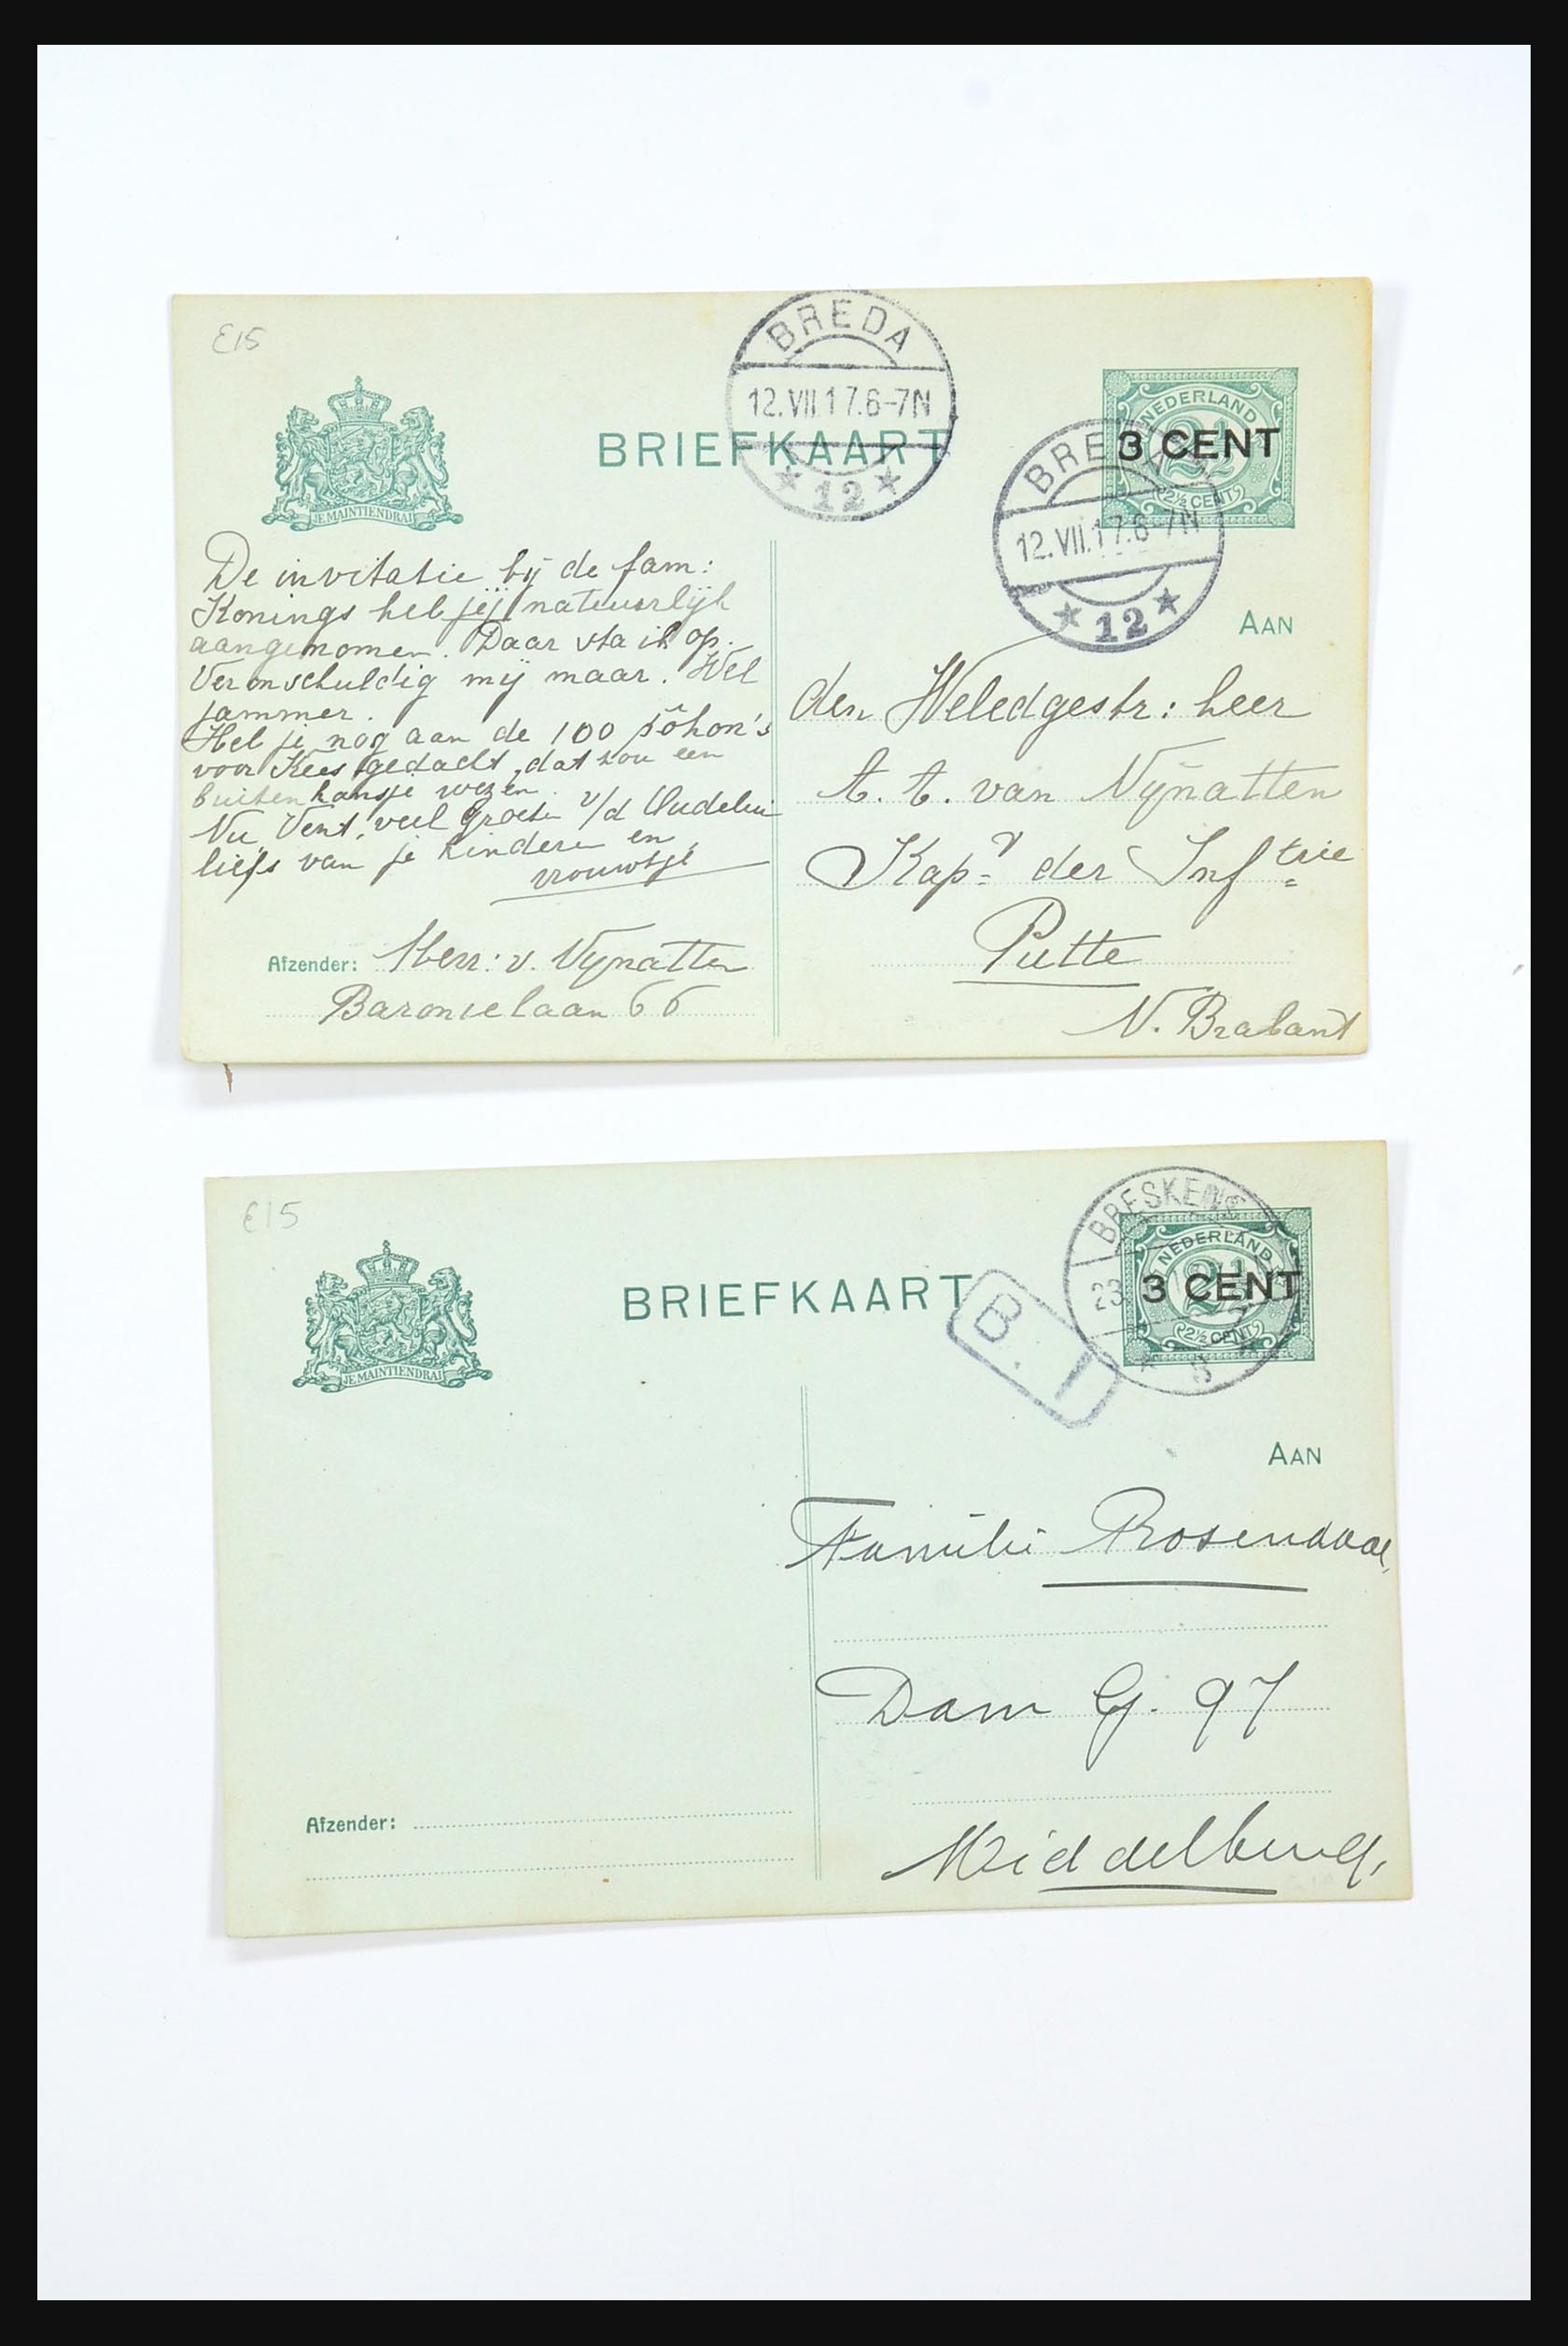 E15
BREDA
12.VII.17.6-7N
12
BRIEFKAART
NEDERLAND
3 CENT
2½ CENT
BREDA
12.VII.17.6-7N
12
JE MAINTIENDRAI
De invitatie bij de fam:
Konings heb jij natuurlijk
aangenomen. Daar sta ik op.
Verontschuldig mij maar. Wel
jammer.
Heb je nog aan de 100
voor Kees gedacht, dat zou een
buitenkansje wezen.
Nu, Vent, veel groeten v/d Oudelui
liefs van je kinderen en
vrouwtje
Afzender: Mevr: v. Nijnatten
Baronielaan 66
AAN
den Weledgestr: heer
A. A. van Nijnatten
Kapn der Inftrie
Putte
N. Brabant
E15
BRESKENS
23
BRIEFKAART
NEDERLAND
3 CENT
2½ CENT
JE MAINTIENDRAI
B.
AAN
Familie Rosendaal,
Dam G. 97
Middelburg,
Afzender: